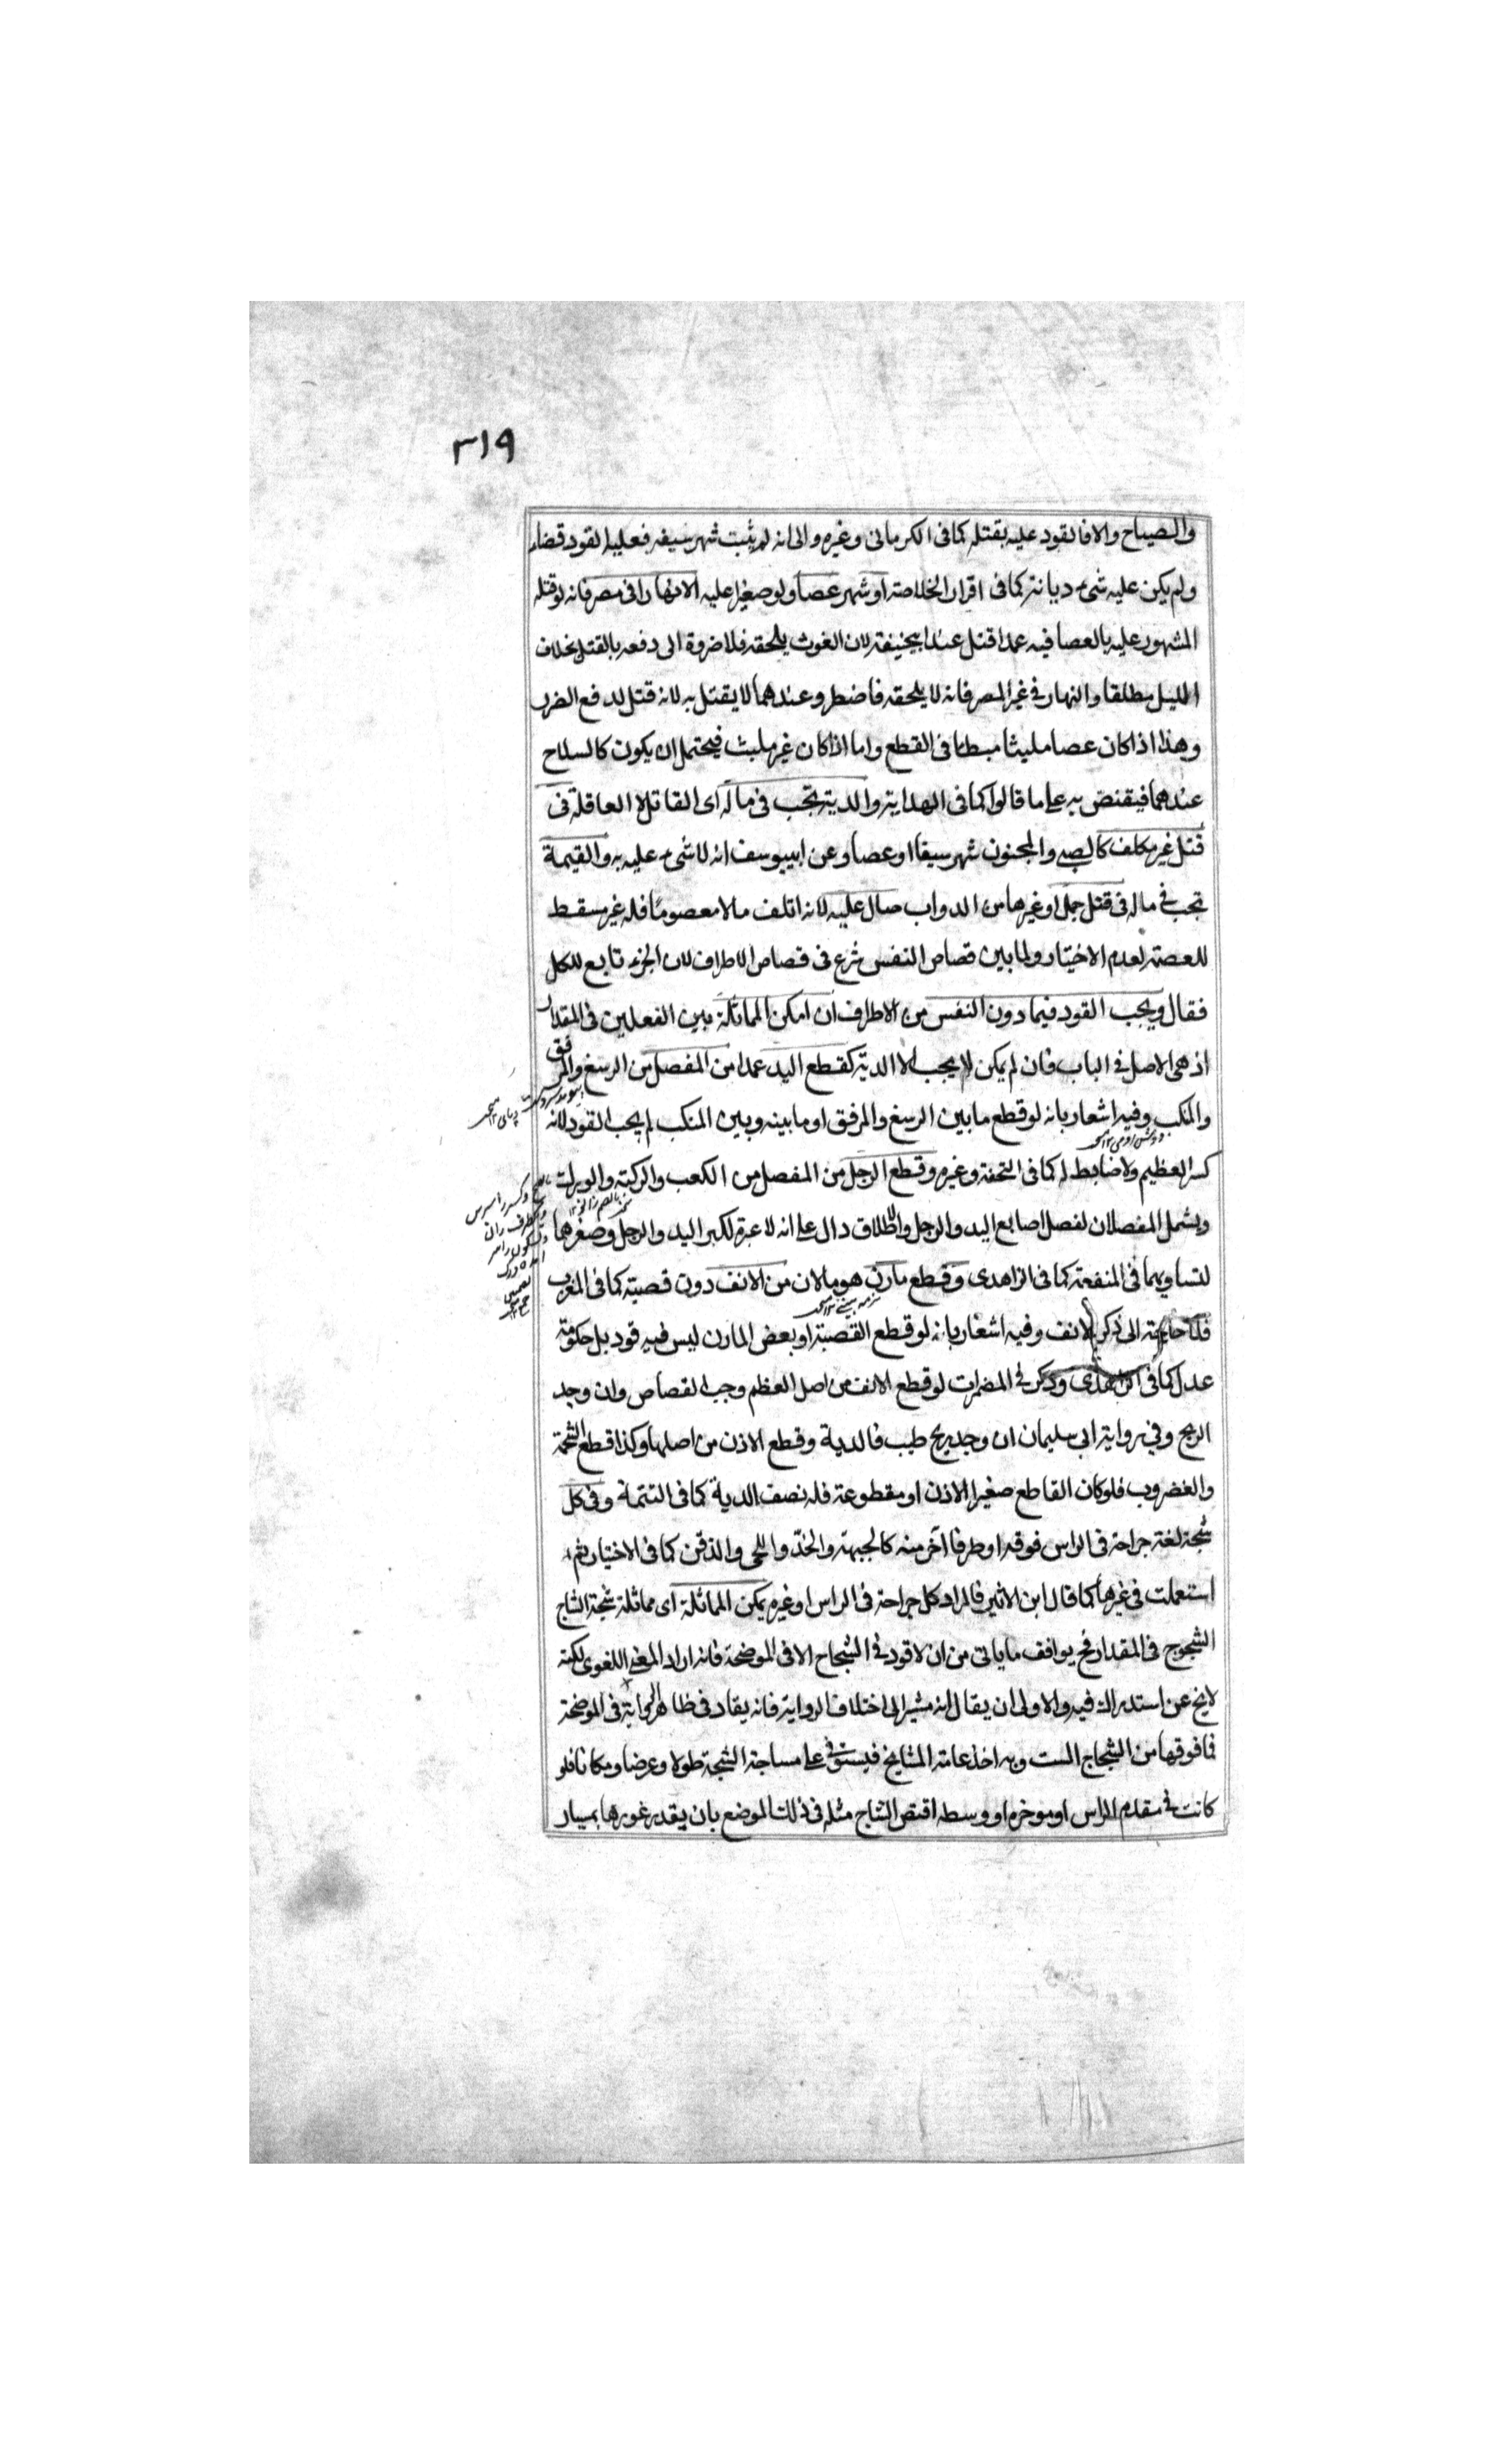 ٣١٩
والصياح والا فالقود عليه بقتله كما فى الكرمانى وغيره والى انه لم يثبت شهر سيفه فعليه القود قضاء
ولم يكن عليه شىء ديانة كما فى اقرار الخلاصة او شهر عصا ولو صغيرا عليه الا نهارا فى مصر فانه لو قتله
المشهور عليه بالعصا فيه عمدا قتل عند ابيحنيفة لان الغوث يلحقه فلا ضرورة الى دفعه بالقتل بخلاف
الليل مطلقا والنهار فى غير المصر فانه لا يلحقه فاضطر وعندهما لا يقتل به لانه قتل لدفع الضرر
وهذا اذا كان عصا مليثا مبطئا فى القطع واما اذا كان غير ملبث فيحتمل ان يكون كالسلاح
عندهما فيقتص به على ما قالوا كما فى الهداية والدية تجب فى ماله اى القاتل لا العاقلة فى
قتل غير مكلف كالصبى والمجنون شهر سيفا او عصا وعن ابييوسف انه لا شىء عليه به والقيمة
تجب فى ماله فى قتل جمل او غيرها من الدواب صال عليه لانه اتلف مالا معصوما فله غير مسقط
للعصمة لعدم الاختيار ولما بين قصاص النفس شرع فى قصاص الاطراف لان الجزء تابع للكل
فقال ويجب القود فيما دون النفس من الاطراف ان امكن المماثلة بين الفعلين فى المقدار
اذ هى الاصل فى الباب فان لم يكن لا يجب الا الدية كقطع اليد عمدا من المفصل من الرسغ والمرفق
والمنكب وفيه اشعار بانه لو قطع ما بين الرسغ والمرفق او ما بينه وبين المنكب لم يجب القود لانه
كسر العظيم ولا ضابط له كما فى التحفة وغيره وقطع الرجل من المفصل من الكعب والركبة والورك
ويشمل المفصلان لفصل اصابع اليد والرجل والاطلاق دال على انه لا عبرة لكبر اليد والرجل وصغرهما
لتساويهما فى المنفعة كما فى الزاهدى وقطع مارن هو ما لان من الانف دون قصبته كما فى المغرب
فلا حاجة الى ذكر الانف وفيه اشعار بانه لو قطع القصبة او بعض المارن ليس فيه قود بل حكومة
عدل كما فى الزاهدى وذكر فى المضمرات لو قطع الانف من اصل العظم وجب القصاص وان وجد
الريح وفى رواية ابى سليمان ان وجد ريح طيب فالدية وقطع الاذن من اصلها وكذا قطع الشحمة
والغضروب فلو كان القاطع صغير الاذن او مقطوعة فله نصف الدية كما فى التتمة وفى كل
شجة لغة جراحة فى الراس فوقه او طرفا آخر منه كالجبهة والخد واللحى والذقن كما فى الاختيار ثم
استعملت فى غيرها كما قال ابن الاثير فالمراد كل جراحة فى الراس او غيره يمكن المماثلة اى مماثلة شجة الشاج
الشجوج فى المقدار فح يوافق ما ياتى من ان لا قود فى الشجاج الا فى الموضحة فانه اراد المعنى اللغوى لكنه
لا يخ عن استدراك فيه والاولى ان يقال انه مشير الى اختلاف الرواية فانه يقاد فى ظاهر الرواية فى الموضحة
فما فوقها من الشجاج الست وبه اخذ عامة المشايخ فيستوفى على مساحة الشجة طولا وعرضا ومكانا فلو
كانت فى مقدم الراس او موخره او وسطه اقتص الشاج مثله فى ذلك الموضع بان يقدر غورها بمسبار